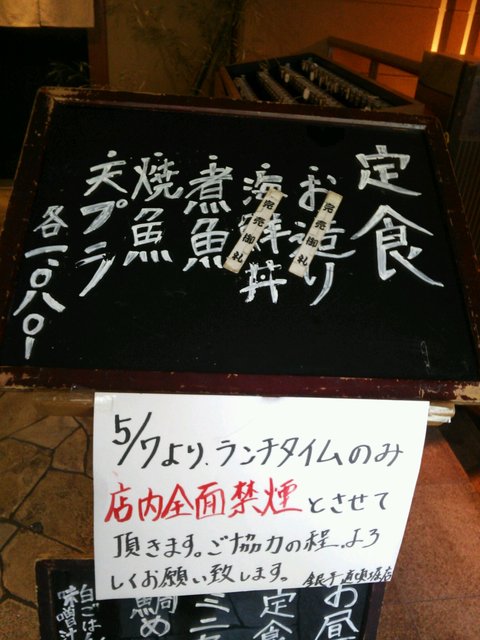 定食
お造り
完売御礼
海鮮丼
完売御礼
煮魚
焼魚
天プラ
各一、〇八〇ー
5/7より、ランチタイムのみ
店内全面禁煙とさせて
頂きます。ご協力の程、よろ
しくお願い致します。
お昼
定食
ミニ
白ごはん
味噌汁